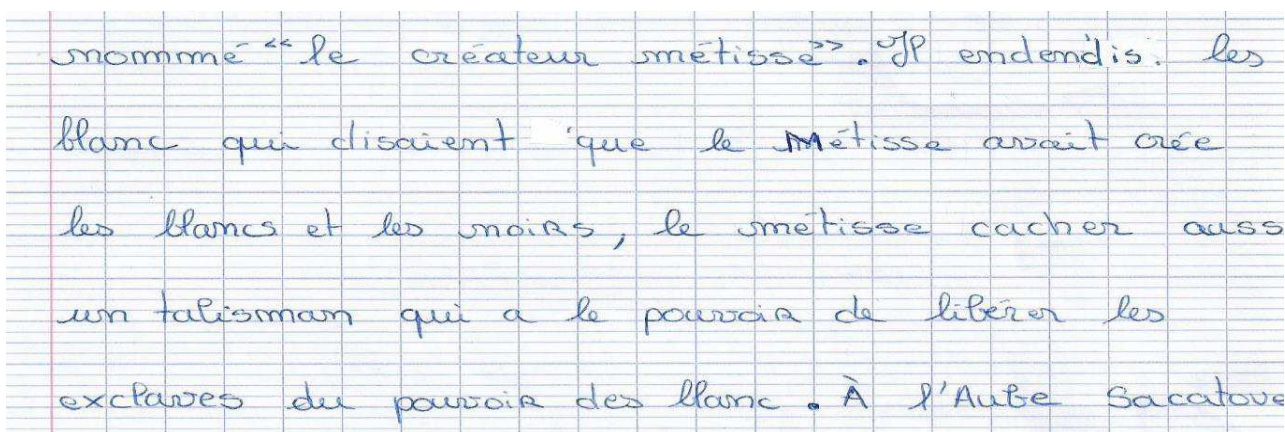 nommé "le créateur métisse". Il endendis. les
blanc qui disaient que le Métisse avait crée
les blancs et les noirs, le métisse cacher auss
un talisman qui a le pouvoir de libérer les
exclaves du pouvoir des blanc. À l'Aube Sacatove